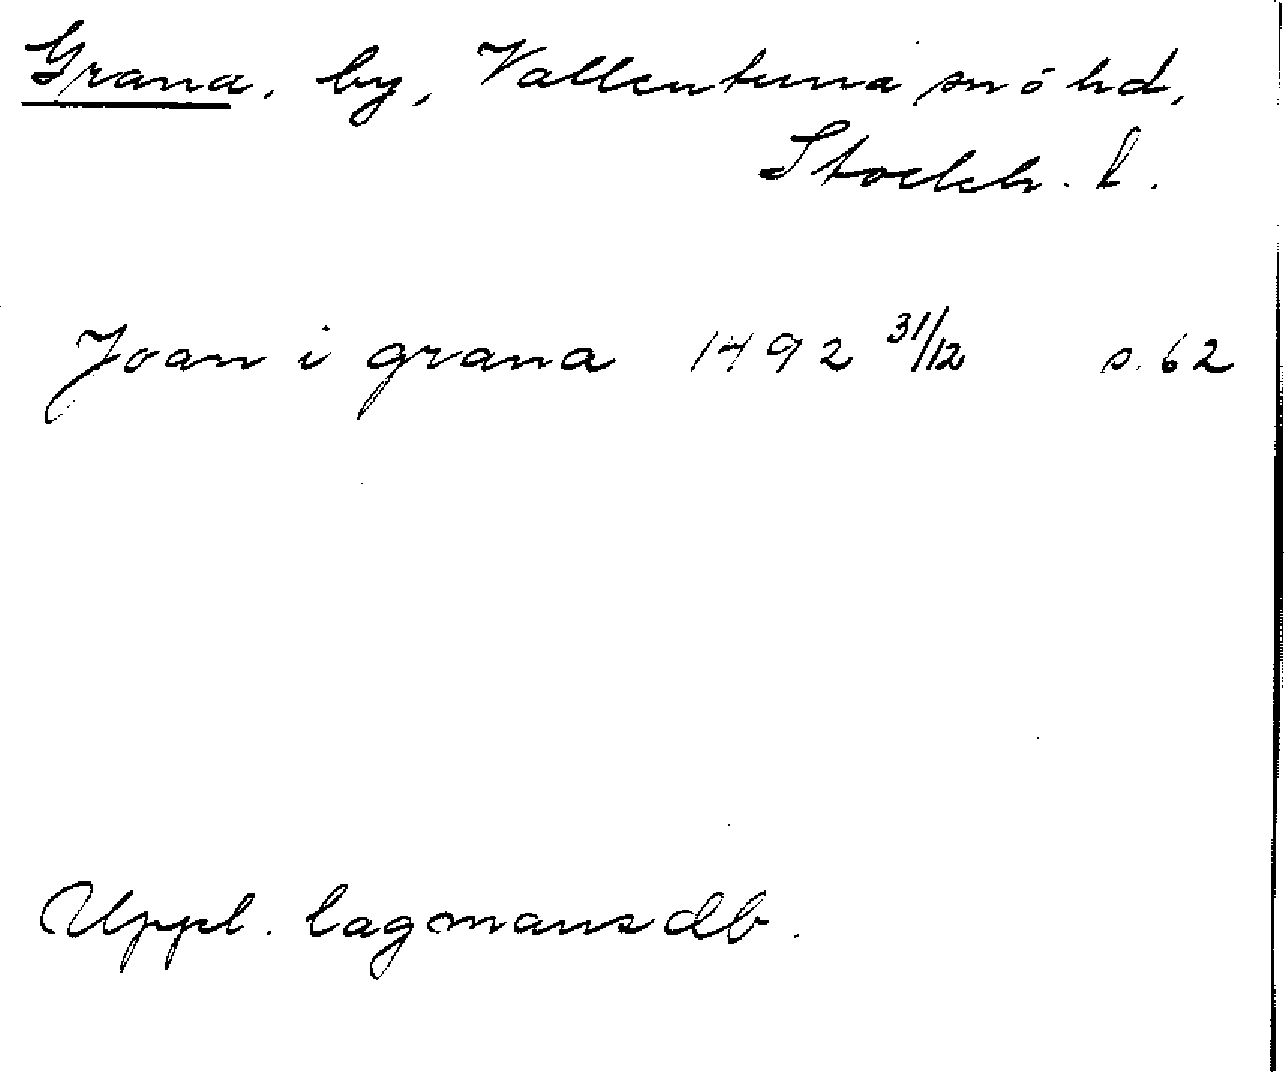 Grana, by, Vallentuna sn ö hd,
Stockh. l.
Joan i grana 1492 31/12 s. 62
Uppl. lagmansdb.